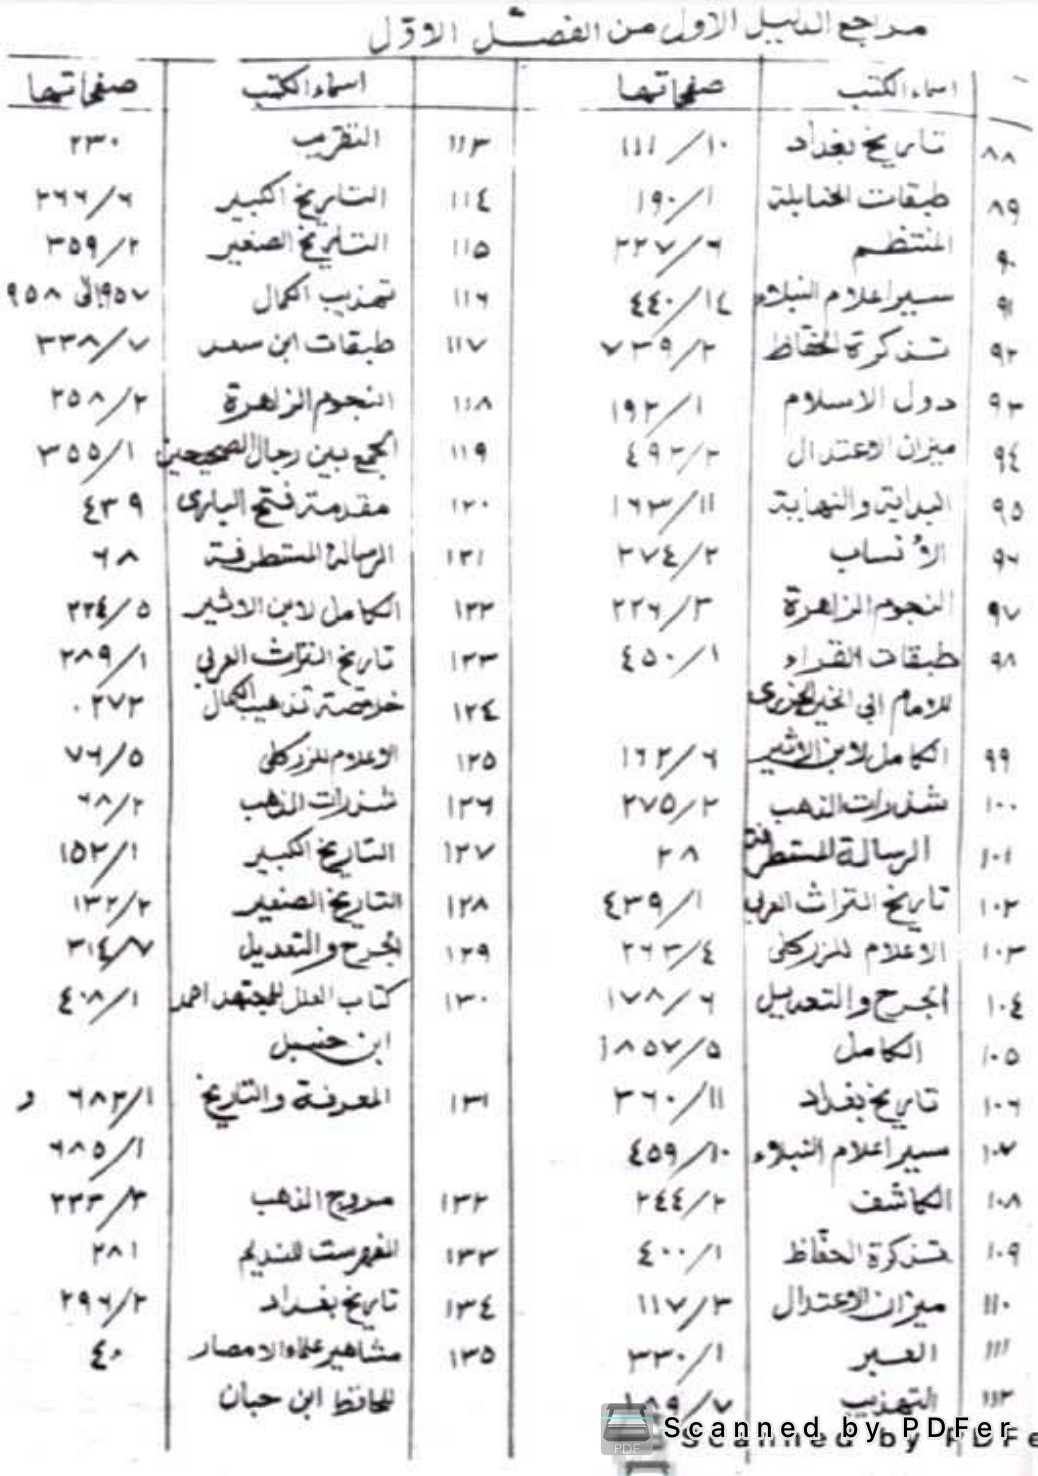 مراجع الدليل الاول من الفصل الاوّل
اسماء الكتب صفحاتها
٨٨ تاريخ بغداد ١٠/١١١
٨٩ طبقات الحنابلة ١/١٩٠
٩٠ المنتظم ٦/٢٢٧
٩١ سير اعلام النبلاء ١٤/٤٤٠
٩٢ تذكرة الحفّاظ ٢/٧٣٩
٩٣ دول الاسلام ١/١٩٢
٩٤ ميزان الاعتدال ٢/٤٩٢
٩٥ البداية والنهاية ١١/١٦٣
٩٦ الأنساب ٢/٢٧٤
٩٧ النجوم الزاهرة ٣/٢٢٦
٩٨ طبقات القراء ١/٤٥٠
للامام ابي الخير الجزرى
٩٩ الكامل لابن الاثير ٦/١٦٢
١٠٠ شذرات الذهب ٢/٢٧٥
١٠١ الرسالة المستطرفة ٢٨
١٠٢ تاريخ التراث العربي ١/٤٣٩
١٠٣ الاعلام للزركلى ٤/٢٦٣
١٠٤ الجرح والتعديل ٦/١٧٨
١٠٥ الكامل ٥/١٨٥٧
١٠٦ تاريخ بغداد ١١/٣٦٠
١٠٧ سير اعلام النبلاء ١٠/٤٥٩
١٠٨ الكاشف ٢/٢٤٤
١٠٩ تذكرة الحفّاظ ١/٤٠٠
١١٠ ميزان الاعتدال ٣/١١٧
١١١ العبر ١/٣٣٠
١١٢ التهذيب ٧/١٨٩
اسماء الكتب صفحاتها
١١٣ التقريب ٢٣٠
١١٤ التاريخ الكبير ٦/٢٦٦
١١٥ التاريخ الصغير ٢/٣٥٩
١١٦ تهذيب الكمال ٩٥٧ الى ٩٥٨
١١٧ طبقات ابن سعد ٧/٣٣٨
١١٨ النجوم الزاهرة ٢/٢٥٨
١١٩ الجمع بين رجال الصحيحين ١/٣٥٥
١٢٠ مقدمة فتح البارى ٤٣٩
١٢١ الرسالة المستطرفة ٦٨
١٢٢ الكامل لابن الاثير ٥/٢٢٤
١٢٣ تاريخ التراث العربي ١/٢٨٩
١٢٤ خلاصة تذهيب الكمال ٢٧٢٠
١٢٥ الاعلام للزركلى ٥/٧٦
١٢٦ شذرات الذهب ٢/٦٨
١٢٧ التاريخ الكبير ١/١٥٢
١٢٨ التاريخ الصغير ٢/١٣٢
١٢٩ الجرح والتعديل ٧/٣١٤
١٣٠ كتاب العلل للمجتهد احمد ١/٤٠٨
ابن حنبل
١٣١ المعرفة والتاريخ ١/٦٨٢ و
١/٦٨٥
١٣٢ مروج الذهب ٣/٢٣٣
١٣٣ الفهرست للنديم ٢٨١
١٣٤ تاريخ بغداد ٢/٢٩٦
١٣٥ مشاهير علماء الامصار ٤٠
للحافظ ابن حبان
Scanned by PDFer
PDF
Scanned by PDFe